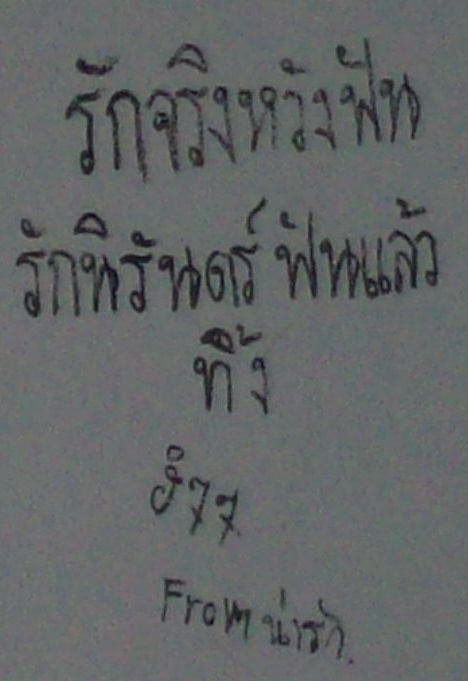 รักจริงหวังฟัน
รักนิรันดร์ ฟันแล้ว
ทิ้ง
From น่ารัก.